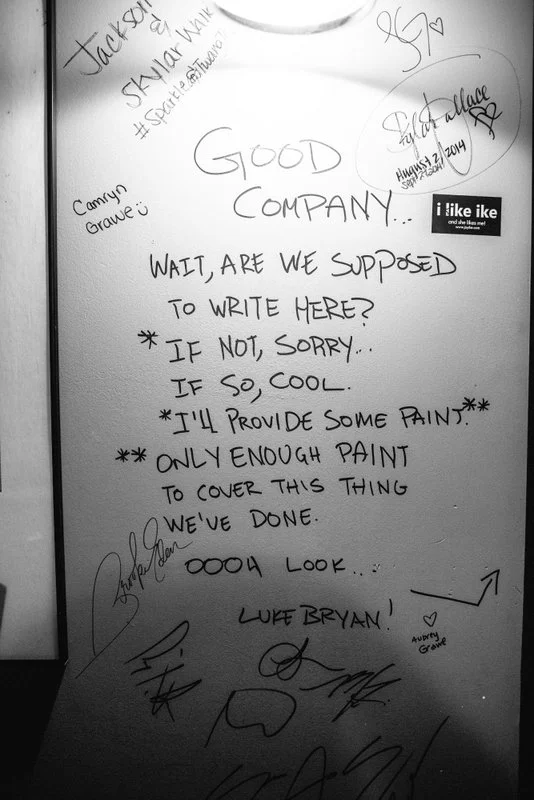 Jackson
&
Skylar Walk
GOOD
COMPANY...
Camryn
Grawe
August 2, 2014
i like ike
and she likes me!
WAIT, ARE WE SUPPOSED
TO WRITE HERE?
* IF NOT, SORRY...
IF SO, COOL.
*I'LL PROVIDE SOME PAINT.**
** ONLY ENOUGH PAINT
TO COVER THIS THING
WE'VE DONE.
OOOH LOOK...
LUKE BRYAN!
Aubrey
Grawe